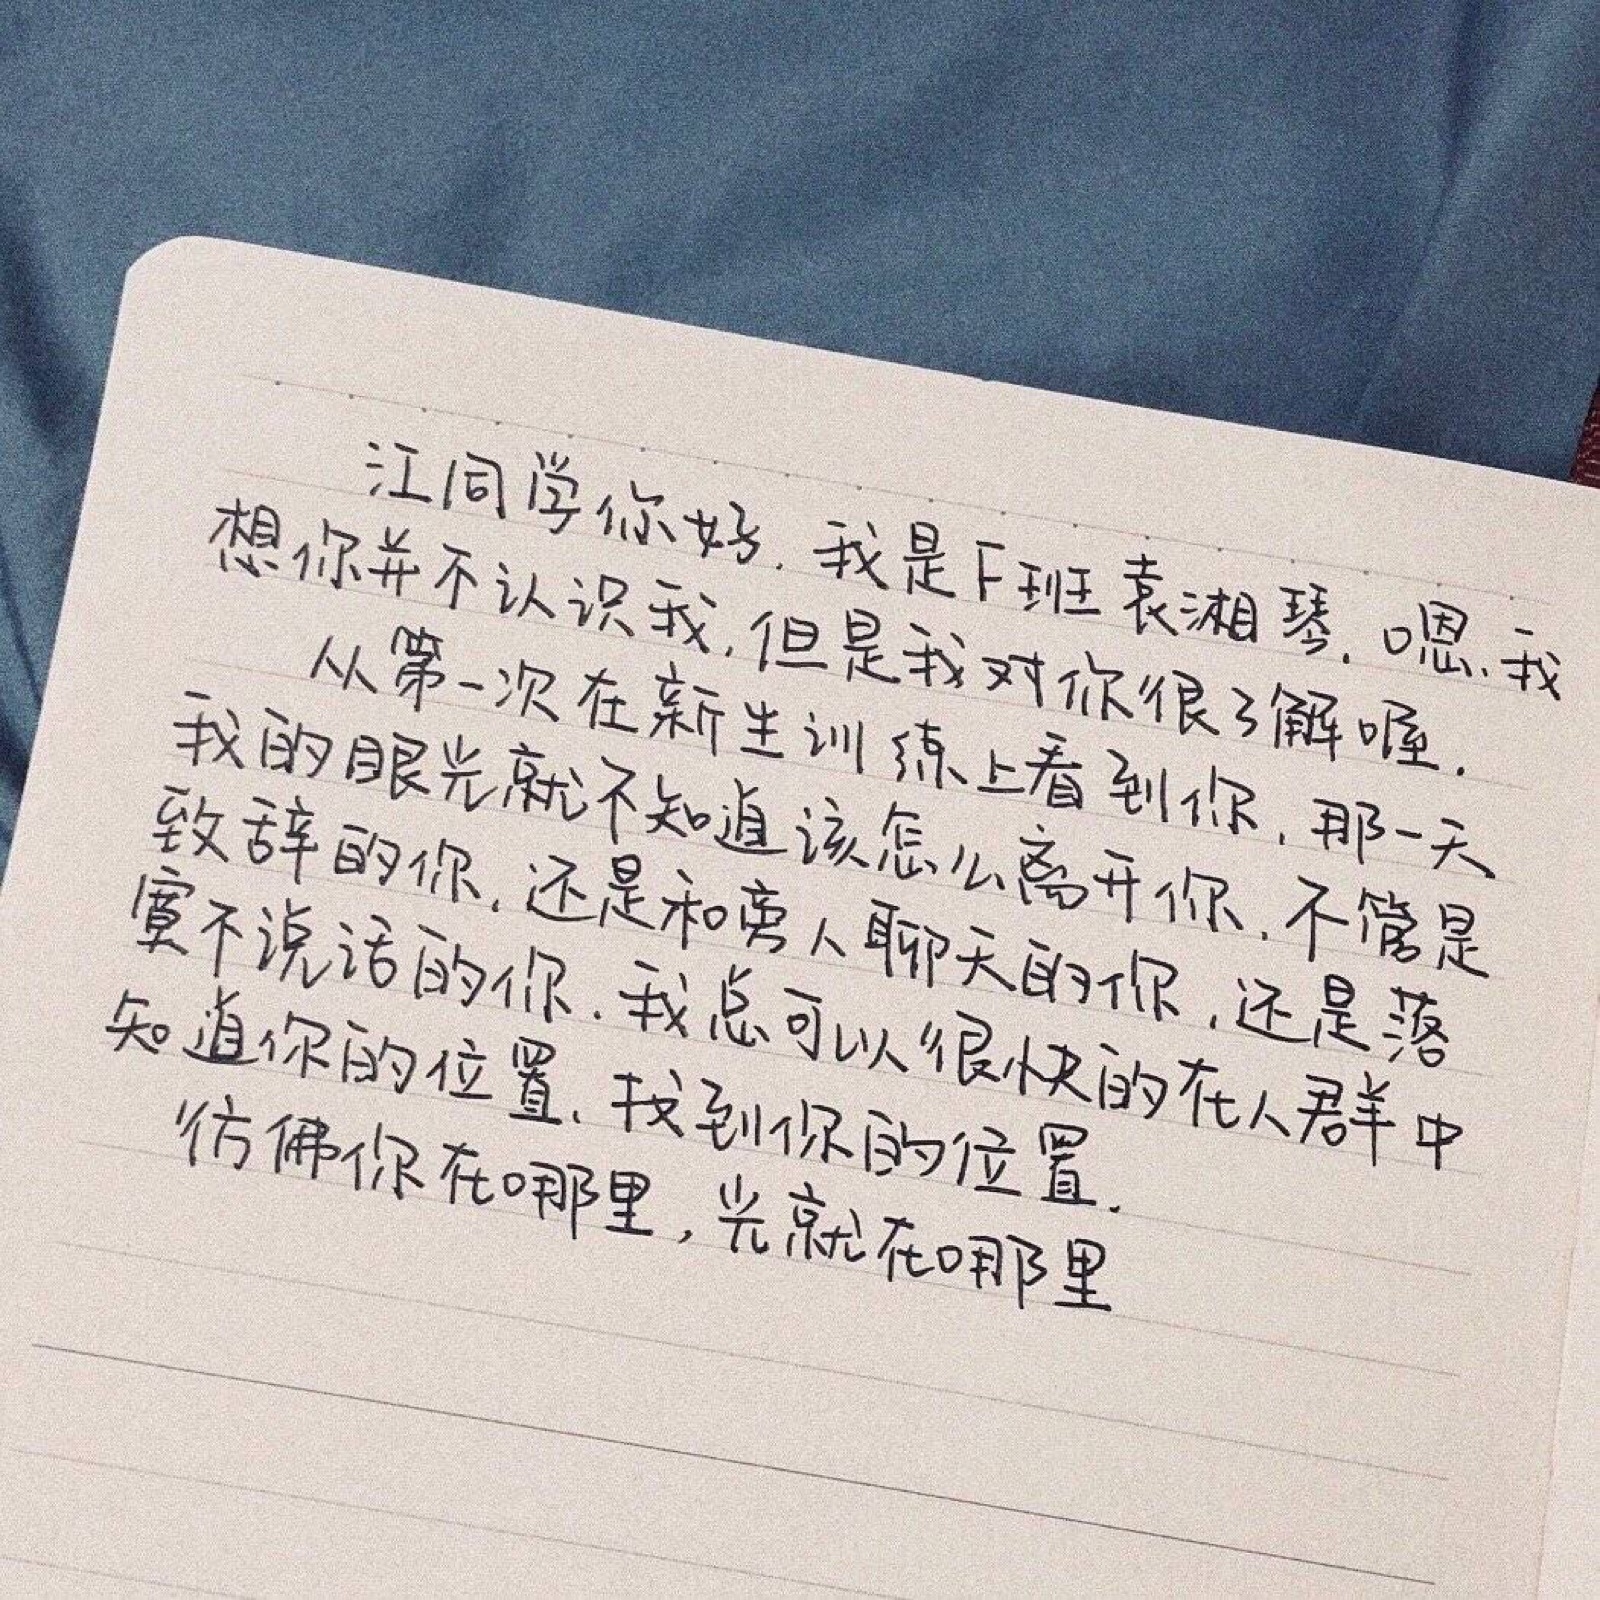 江同学你好.我是F班袁湘琴.嗯.我
想你并不认识我.但是我对你很了解喔.
从第一次在新生训练上看到你.那一天
我的眼光就不知道该怎么离开你.不管是
致辞的你.还是和旁人聊天的你.还是落
寞不说话的你.我总可以很快的在人群中
知道你的位置.找到你的位置.
彷佛你在哪里,光就在哪里